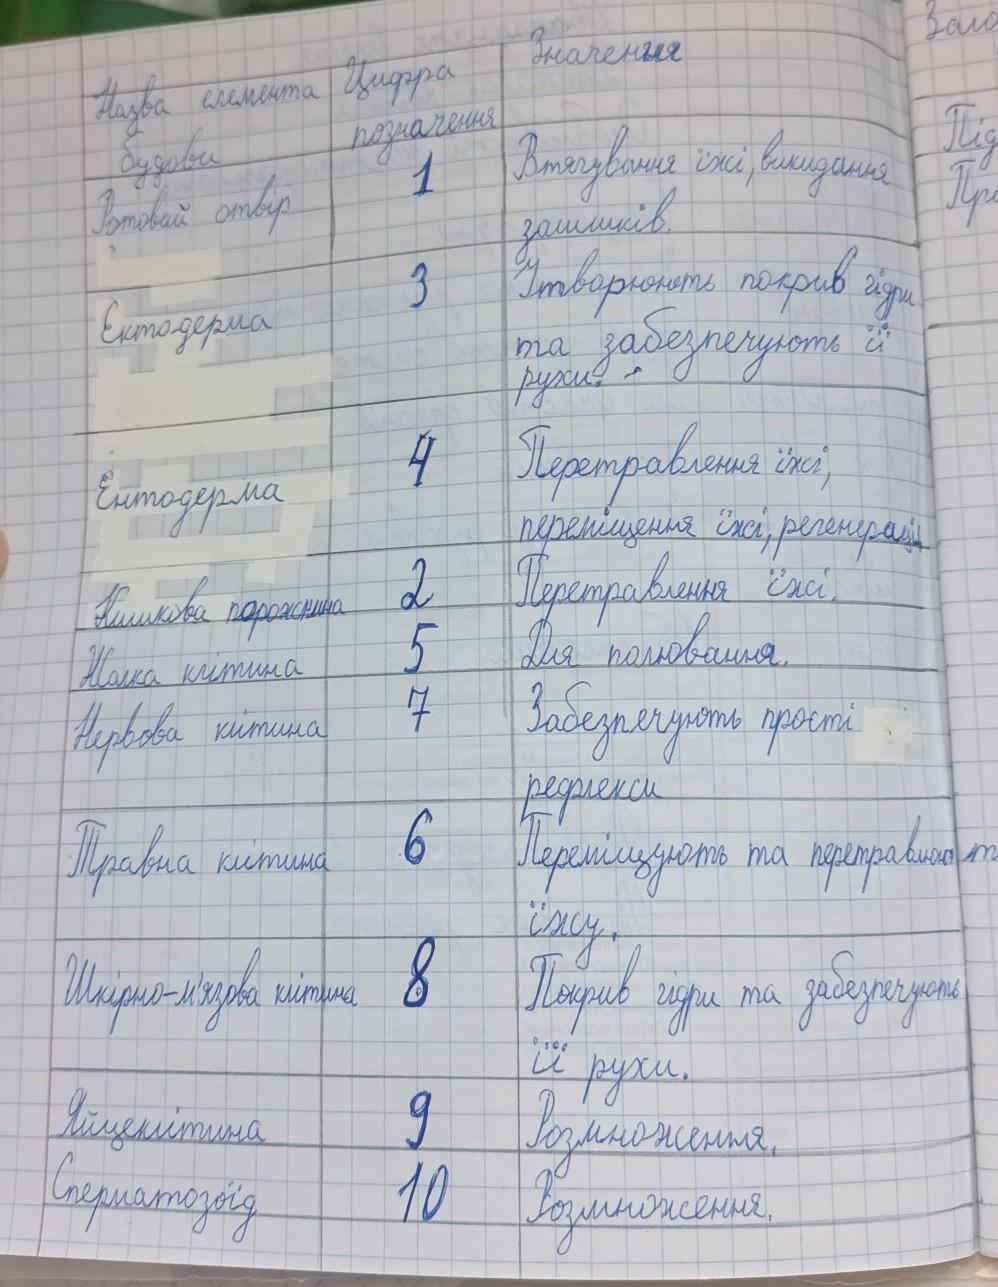 Назва елемента
будови
Цифра
позначення
Значення
Ротовий отвір
1
Втягування їжі, викидання
залишків.
Ектодерма
3
Утворюють покрив гідри
та забезпечують її
рухи.
Ентодерма
4
Перетравлення їжі,
переміщення їжі, регенерація
Кишкова порожнина
2
Перетравлення їжі.
Жалка клітина
5
Для полювання.
Нервова клітина
7
Забезпечують прості
рефлекси
Травна клітина
6
Переміщують та перетравлюють
їжу.
Шкірно-м'язова клітина
8
Покрив гідри та забезпечують
її рухи.
Яйцеклітина
9
Розмноження.
Сперматозоїд
10
Розмноження.
Під